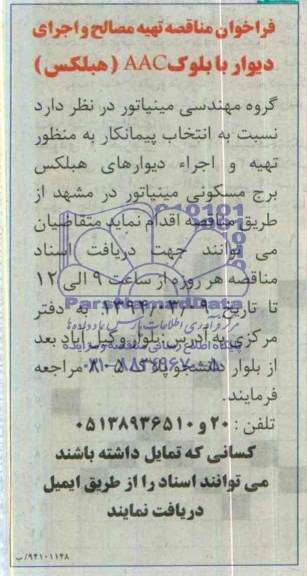 فراخوان مناقصه تهیه مصالح و اجرای
دیوار با بلوک AAC (هبلکس)
گروه مهندسی مینیاتور در نظر دارد
نسبت به انتخاب پیمانکار به منظور
تهیه و اجراء دیوارهای هبلکس
برج مسکونی مینیاتور در مشهد از
طریق مناقصه اقدام نماید متقاضیان
می توانند جهت دریافت اسناد
مناقصه هر روزه از ساعت ۹ الی ۱۲
تا تاریخ ۱۳۹۴/۰۳/۰۹ به دفتر
مرکزی به آدرس بلوار وکیل آباد بعد
از بلوار دانشجو پلاک ۸۰۵ مراجعه
فرمایند.
تلفن : ۲۰ و ۰۵۱۳۸۹۳۶۵۱۰
کسانی که تمایل داشته باشند
می توانند اسناد را از طریق ایمیل
دریافت نمایند
۹۴۱۰۱۱۴۸/ب
ParsNamadData